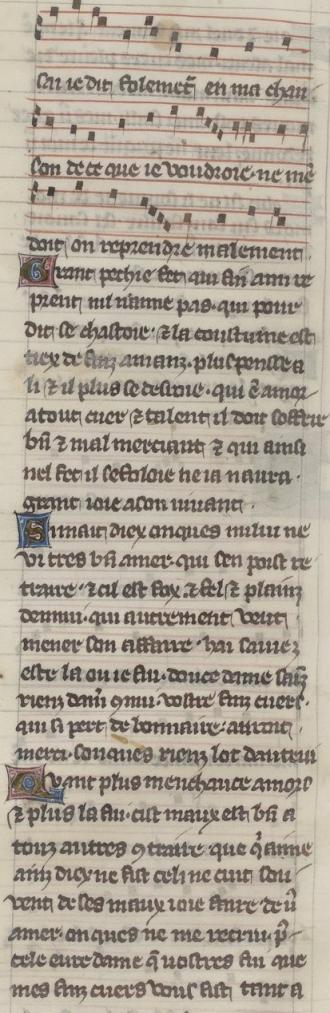 sai ie dit folemēt en ma chan
son de ce que ie voudroie. ne mē
doit on reprendre malement.
Grant pechie fet qui fin ami re
prent nil naime pas. qui pour
dit se chastoie. ⁊ la coustume est
tiex de finz amanz. plus pensse a
li ⁊ il plus se desvoie. qui ē amor
a tout cuer ⁊ talent il doit soffrir
bn̄ ⁊ mal merciant ⁊ qui ainsi
nel fet il se foloie ne ia naura.
grant ioie a son vivant.
Si mait diex onques mil ne
vi tres bn̄ amer. qui sen poist re
traire. ⁊ cil est fox ⁊ fel ⁊ plainz
dennui. qui autrement veut
mener son affaire. hai saviez
estre la ou ie fui. douce dame sāz
rienz dam ꝯnui. vostre finz cuers.
qui si pert de bonnaire. auroit
merci. sonques rienz lot dautrui
Quant plus menchauce amors
⁊ plus la fui. cist maux est bn̄ a
touz autres ꝯtraire. que q̄ aime
ainz diex ne fist celi ne cuit sou
vent de ses maux ioie faire. de v̄
amer. onques ne me recrui. p̄
cele eure dame q̄ vostres fui que
mes finz cuers vous fist tant a